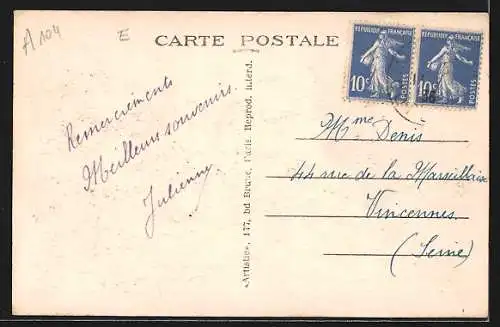 A 104
E
CARTE POSTALE
REPUBLIQUE FRANÇAISE
10c
POSTES
REPUBLIQUE FRANÇAISE
10c
POSTES
Remerciements
Meilleurs souvenirs.
Julienne
«Artistic», 177, bd Paris. Reprod. interd.
Mme Denis
44 rue de la Marseillaise
Vincennes
(Seine)